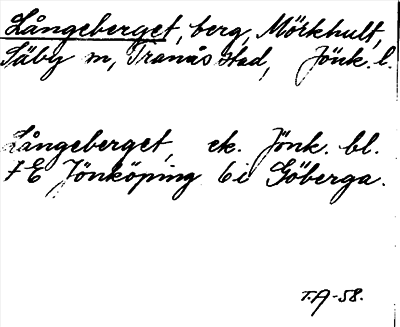 Långeberget, berg, Mörkhult,
Säby m, Tranås stad, Jönk. l.
Långeberget, ek. Jönk. bl.
7 E Jönköping 6 i Göberga.
T.A-58.